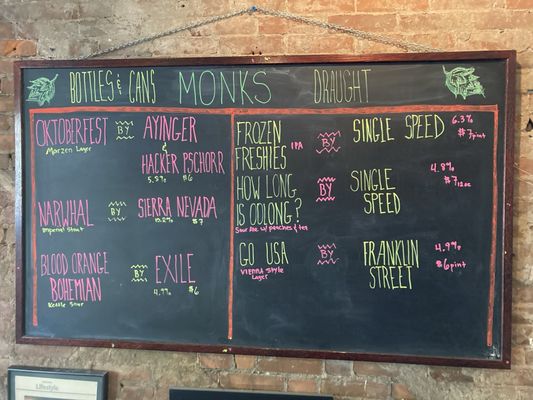 BOTTLES & CANS MONKS DRAUGHT
OKTOBERFEST BY AYINGER
Marzen Lager
&
HACKER PSCHORR
5.8% $6
NARWHAL BY SIERRA NEVADA
Imperial Stout 10.2% $7
BLOOD ORANGE BOHEMIAN BY EXILE
Kettle Sour 4.9% $6
FROZEN FRESHIES IPA BY SINGLE SPEED
6.3%
$7 pint
HOW LONG IS OOLONG? BY SINGLE SPEED
Sour Ale w/ peaches & tea
4.8%
$7 12oz
GO USA BY FRANKLIN STREET
VIENNA STYLE
Lager
4.9%
$6 pint
Lifestyle